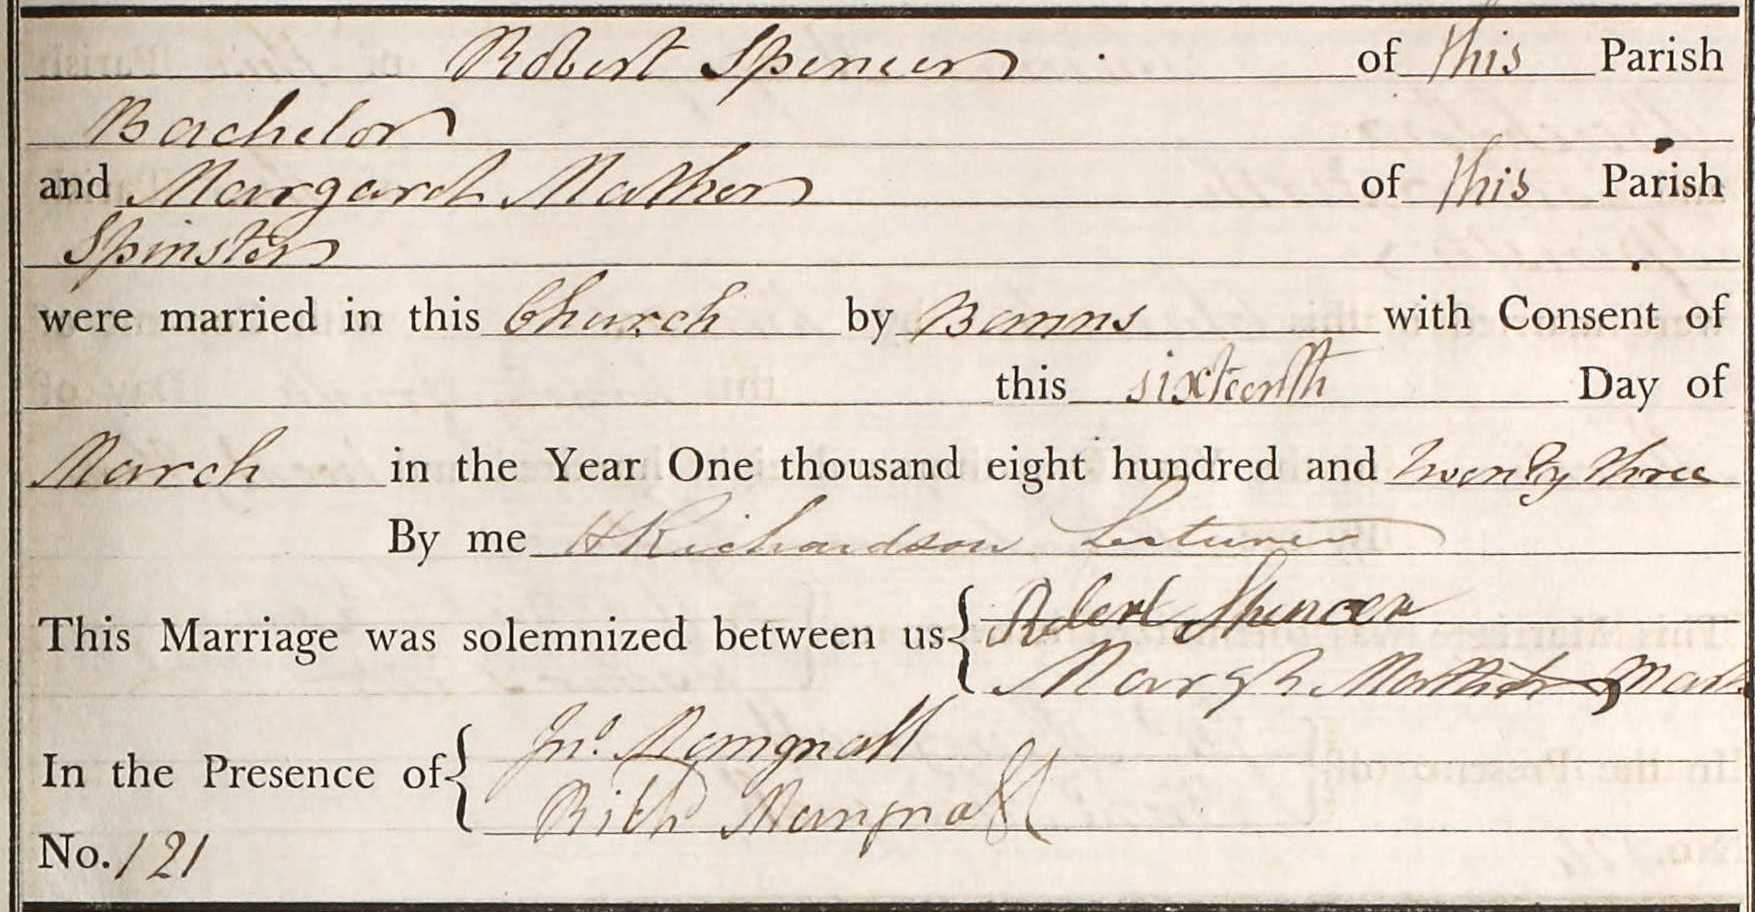 Robert Spencer of this Parish
Bachelor
and Margaret Mather of this Parish
Spinster
were married in this Church by Banns with Consent of
this sixteenth Day of
March in the Year One thousand eight hundred and twenty three
By me H Richardson Lecturer
This Marriage was solemnized between us Robert Spencer
Margt Mather mark
In the Presence of Jno. Mangnall
Richd Mangnall
No. 121